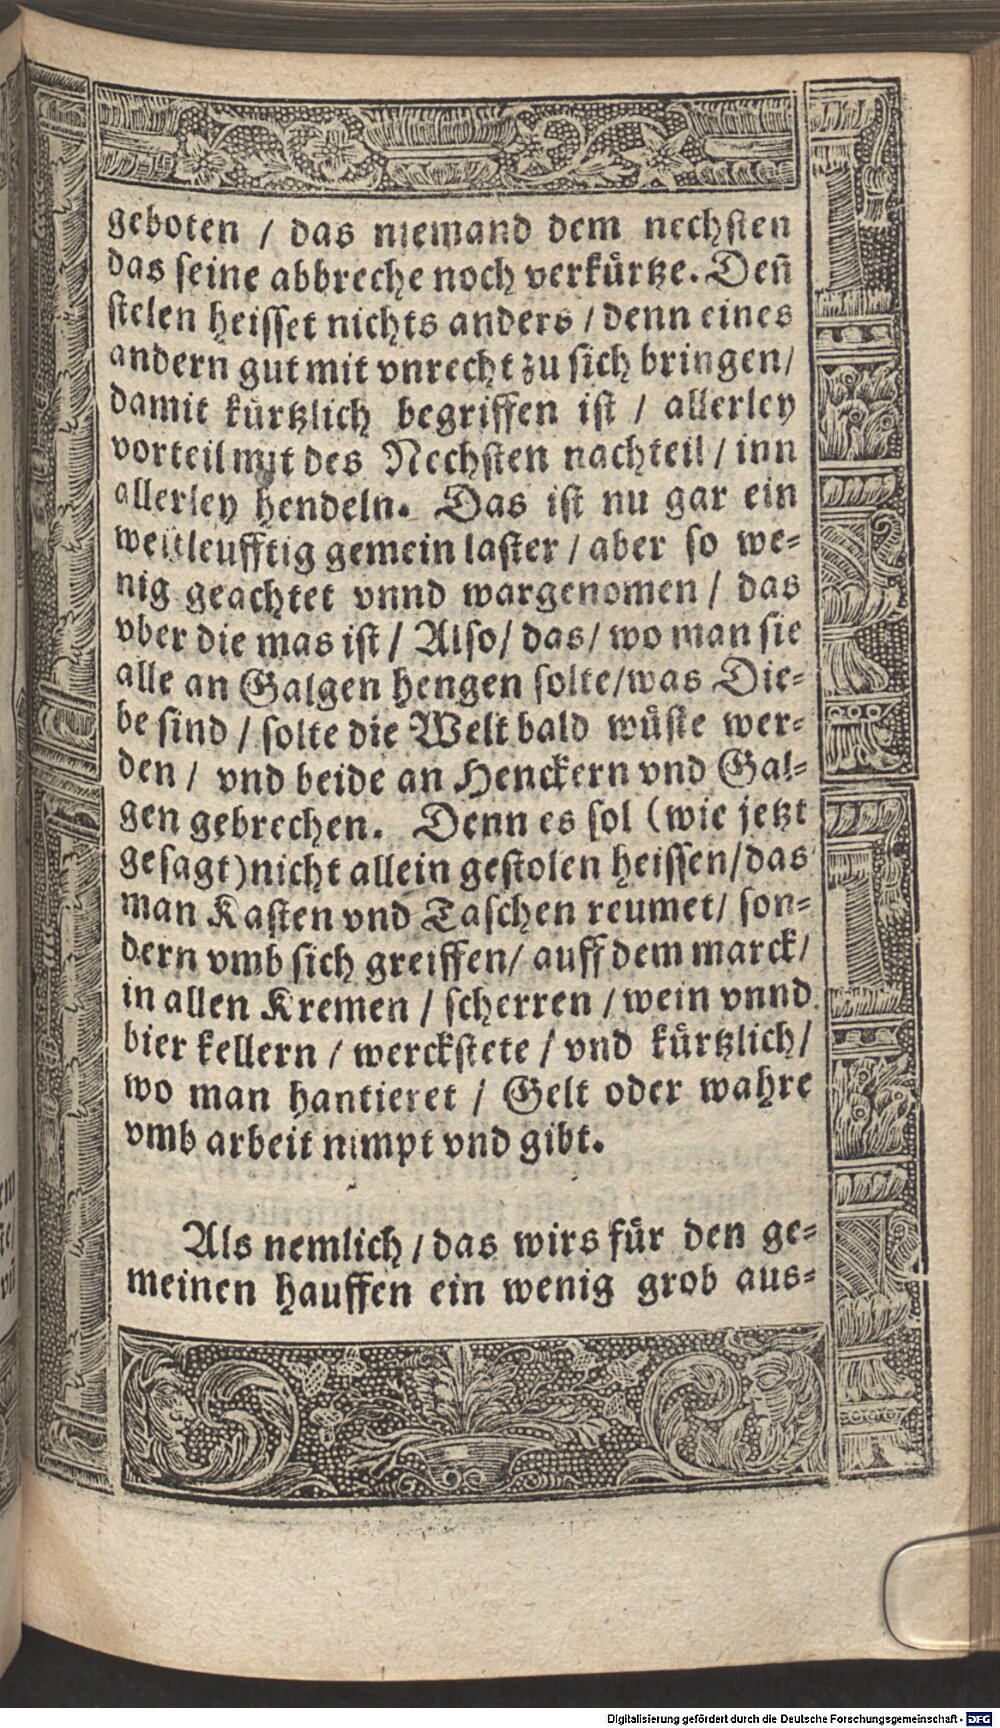 geboten / das niemand dem nechsten
das seine abbreche noch verkuͤrtze. Deñ
stelen heisset nichts anders / denn eines
andern gut mit vnrecht zu sich bringen /
damit kuͤrtzlich begriffen ist / allerley
vorteil mit des Nechsten nachteil / inn
allerley hendeln. Das ist nu gar ein
weitleufftig gemein laster / aber so we⸗
nig geachtet vnnd wargenomen / das
vber die mas ist / Also / das / wo man sie
alle an Galgen hengen solte / was Die⸗
be sind / solte die Welt bald wuͤste wer⸗
den / vnd beide an Henckern vnd Gal⸗
gen gebrechen. Denn es sol (wie jetzt
gesagt) nicht allein gestolen heissen / das
man Kasten vnd Taschen reumet / son⸗
dern vmb sich greiffen / auff dem marck /
in allen Kremen / scherren / wein vnnd
bier kellern / werckstete / vnd kuͤrtzlich /
wo man hantieret / Gelt oder wahre
vmb arbeit nimpt vnd gibt.
Als nemlich / das wirs fuͤr den ge⸗
meinen hauffen ein wenig grob aus⸗
Digitalisierung gefördert durch die Deutsche Forschungsgemeinschaft - DFG